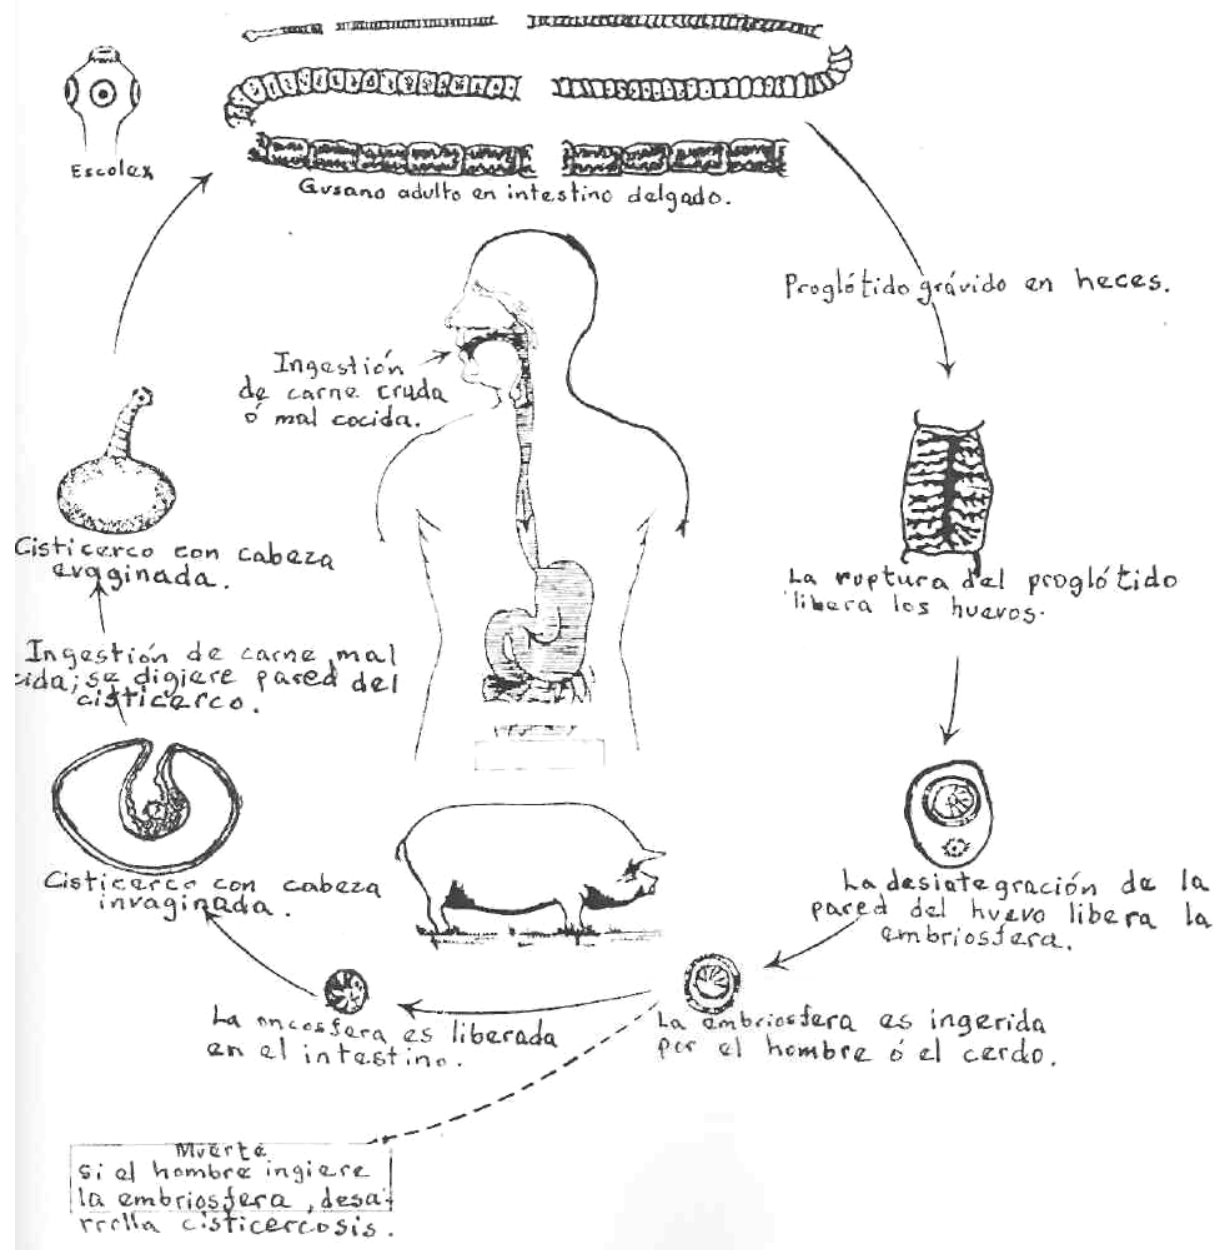 Escolex
Gusano adulto en intestino delgado.
Proglótido grávido en heces.
Ingestión
de carne cruda
ó mal cocida.
La ruptura del proglótido
libera los huevos.
La desintegración de la
pared del huevo libera la
embriosfera.
La embriosfera es ingerida
por el hombre ó el cerdo.
La oncosfera es liberada
en el intestino.
Cisticerco con cabeza
invaginada.
Ingestión de carne mal
cida; se digiere pared del
cisticerco.
Cisticerco con cabeza
evaginada.
Muerte
Si el hombre ingiere
la embriosfera, desa-
rrolla cisticercosis.